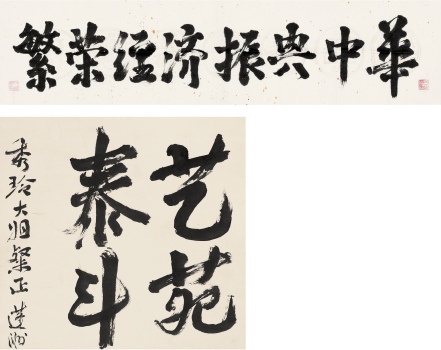 繁荣经济振兴中華
艺苑
泰斗
秀玲大姐粲正